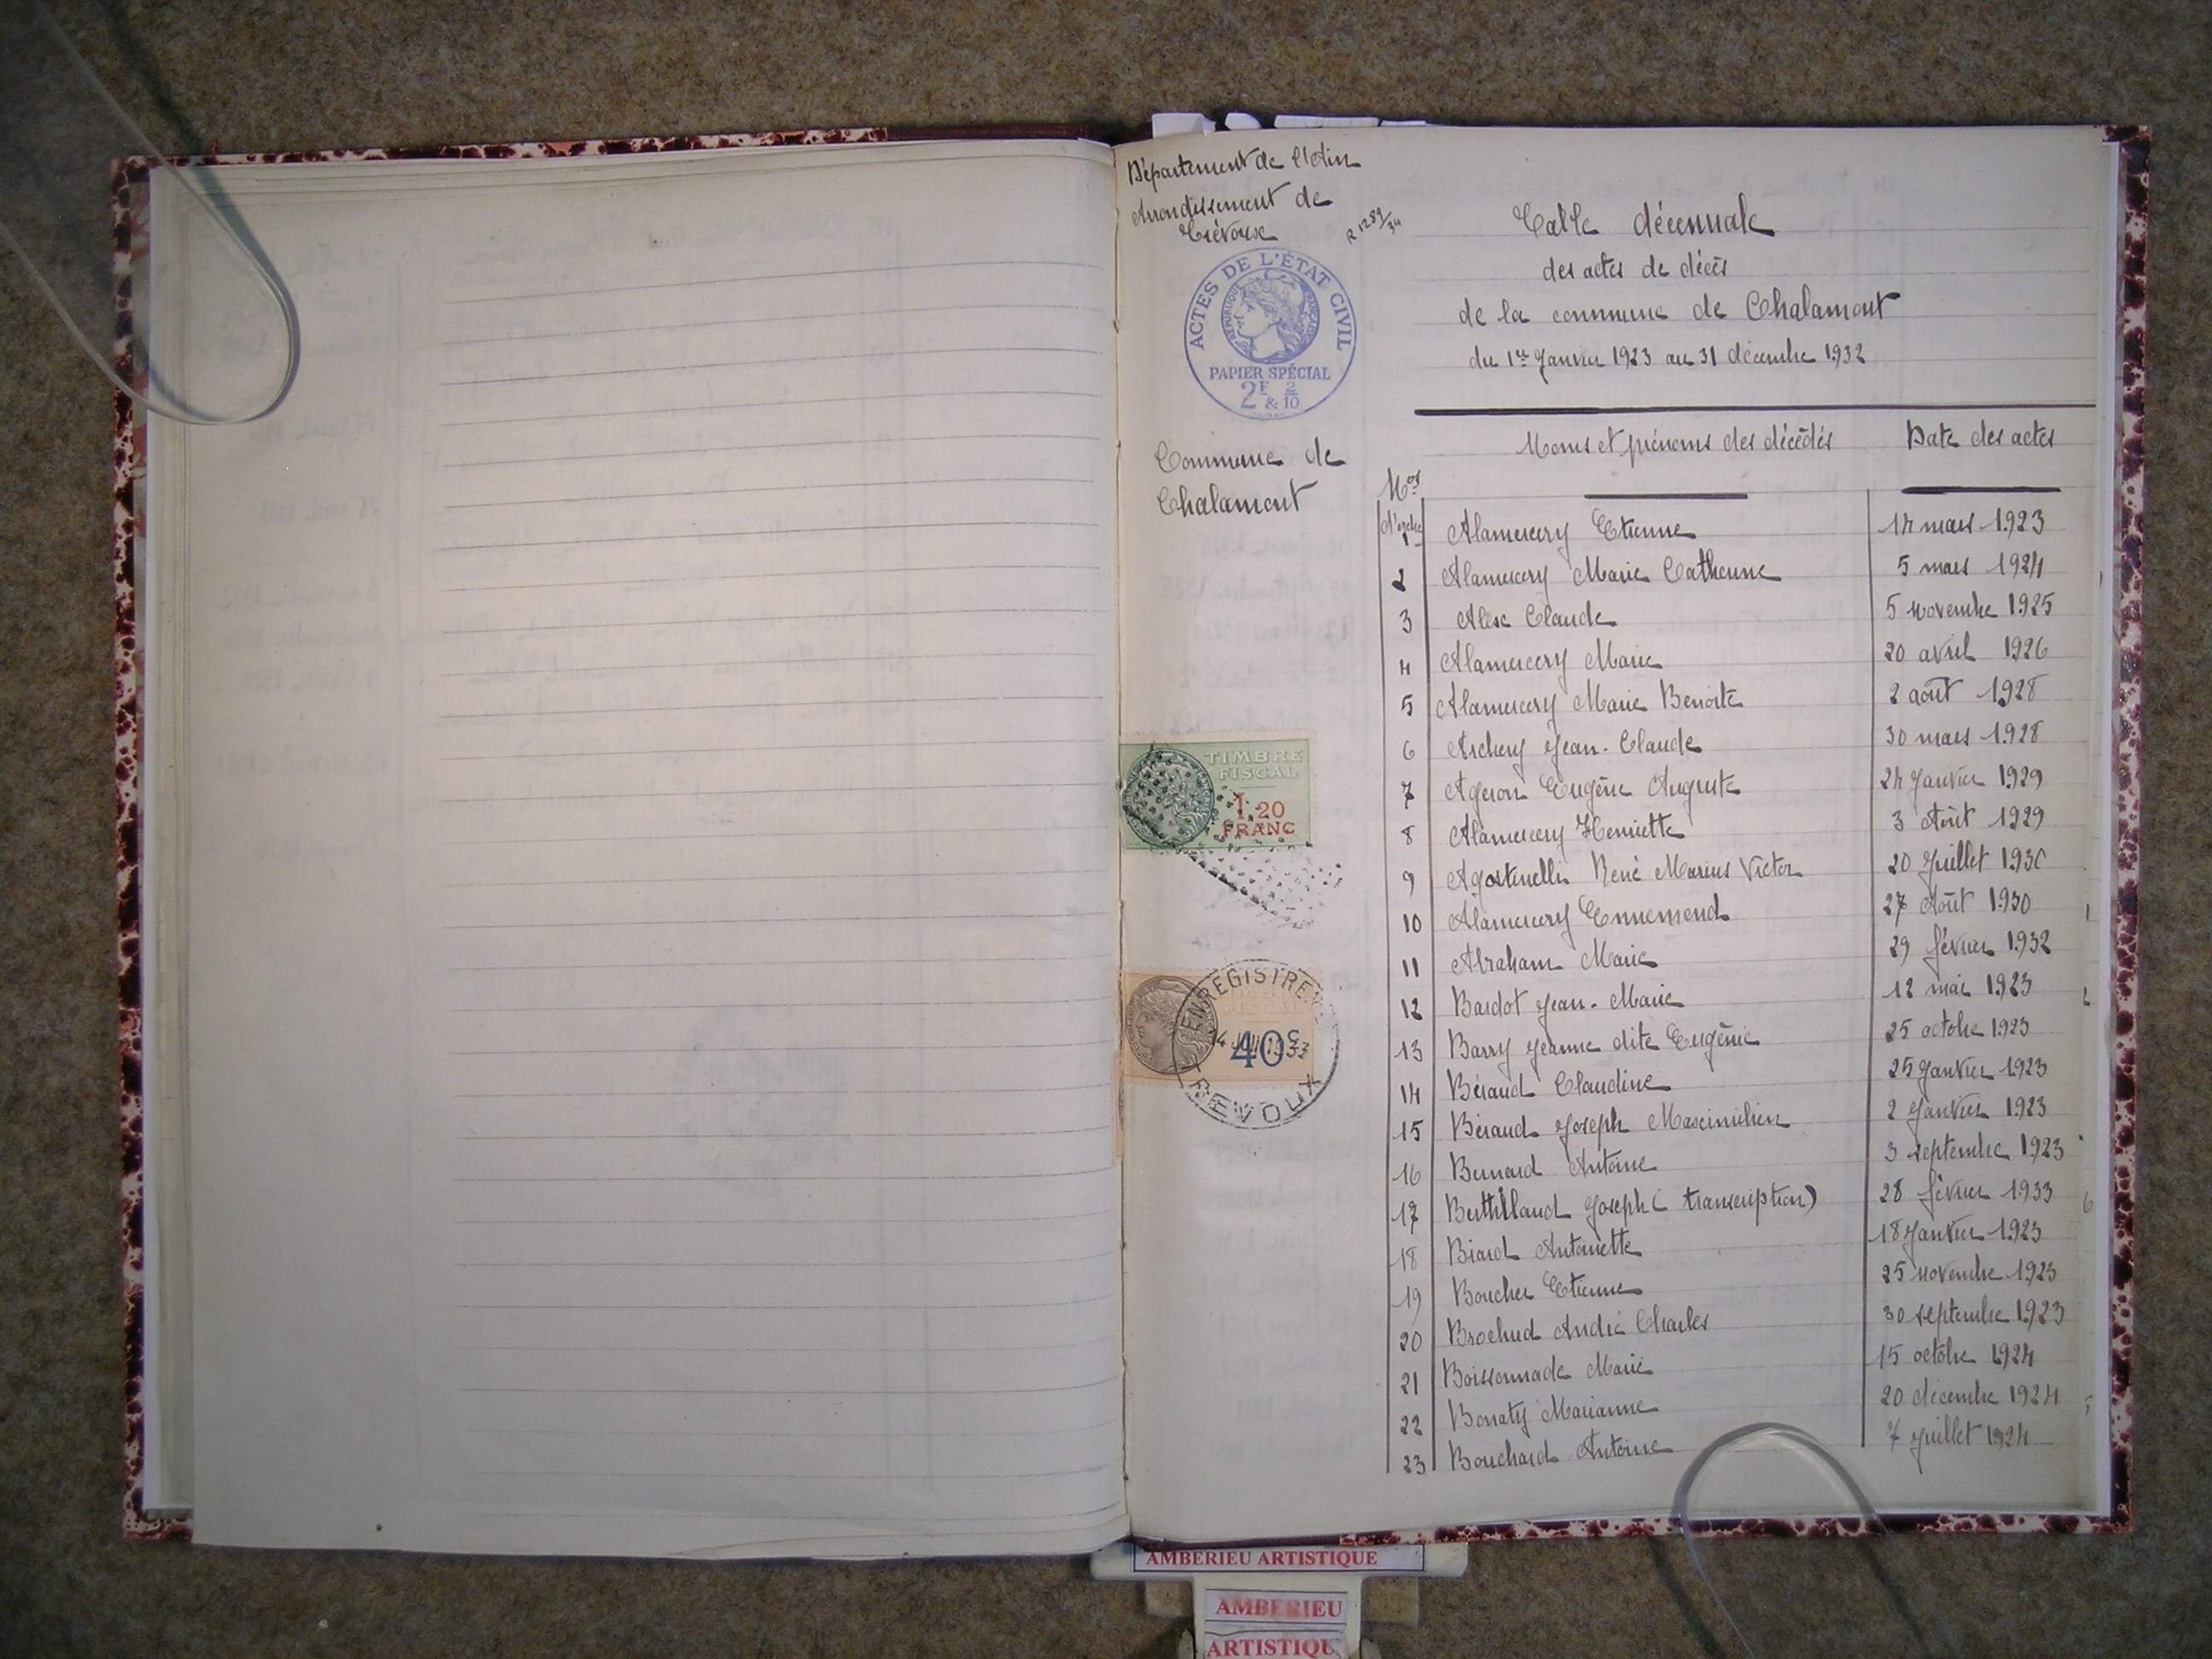 Département de l'Ain
Arrondissement de
Trévoux
R 1289/34
ACTES DE L'ÉTAT CIVIL
RÉPUBLIQUE FRANÇAISE
PAPIER SPÉCIAL
2F & 2/10
Commune de
Chalamont
TIMBRE
FISCAL
1,20
FRANC
ENREGISTREM
40c
TREVOUX
Table décennale
des actes de décès
de la commune de Chalamont
du 1er Janvier 1923 au 31 décembre 1932
Nos d'ordre Noms et prénoms des décédés Date des actes
1 Alamercery Etienne 14 mars 1923
2 Alamercery Marie Catherine 5 mars 1924
3 Alex Claude 5 novembre 1925
4 Alamercery Marie 20 avril 1926
5 Alamercery Marie Benoite 2 août 1928
6 Archery Jean-Claude 30 mars 1928
7 Ageron Eugène Auguste 24 Janvier 1929
8 Alamercery Henriette 3 Août 1929
9 Agostinelli René Marius Victor 20 Juillet 1930
10 Alamercery Ennemond 27 Août 1930
11 Abraham Marie 29 février 1932
12 Bardot Jean-Marie 12 mai 1923
13 Barry Jeanne dite Eugénie 25 octobre 1923
14 Béraud Claudine 25 Janvier 1923
15 Béraud Joseph Maximilien 2 Janvier 1923
16 Bernard Antoine 3 septembre 1923
17 Berthillaud Joseph (transcription) 28 février 1933
18 Biard Antoinette 18 Janvier 1923
19 Boucher Etienne 25 novembre 1923
20 Brochud André Charles 30 septembre 1923
21 Boissonnade Marie 15 octobre 1924
22 Bonaty Marianne 20 décembre 1924
23 Bouchard Antoine 7 Juillet 1924
AMBERIEU ARTISTIQUE
AMBERIEU
ARTISTIQUE